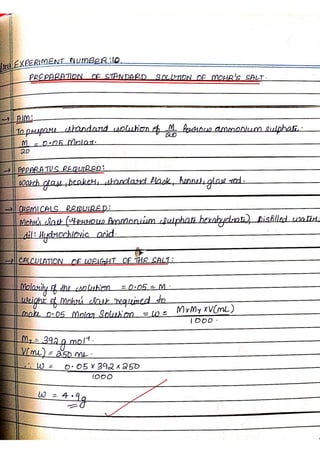 EXPERIMENT NUMBER:10.
PREPARATION OF STANDARD SOLUTION OF MOHR'S SALT.
→ AIM:
To prepare standard solution of M/20 ferrous ammonium sulphate.
M/20 = 0.05 Molar.
→ APPARATUS REQUIRED:
Watch glass, beaker, standard flask, funnel, glass rod.
→ CHEMICALS REQUIRED:
Mohr's salt (Ferrous Ammonium Sulphate hexahydrate) Distilled water,
dil: Hydrochloric acid.
→ CALCULATION OF WEIGHT OF THE SALT:
Molarity of the solution = 0.05 = M.
Weight of Mohr's salt required to
make 0.05 Molar Solution = W = M×My×V(mL)/1000.
My = 392g mol⁻¹.
V(mL) = 250 mL.
∴ W = 0.05 × 392 × 250/1000
W = 4.9g